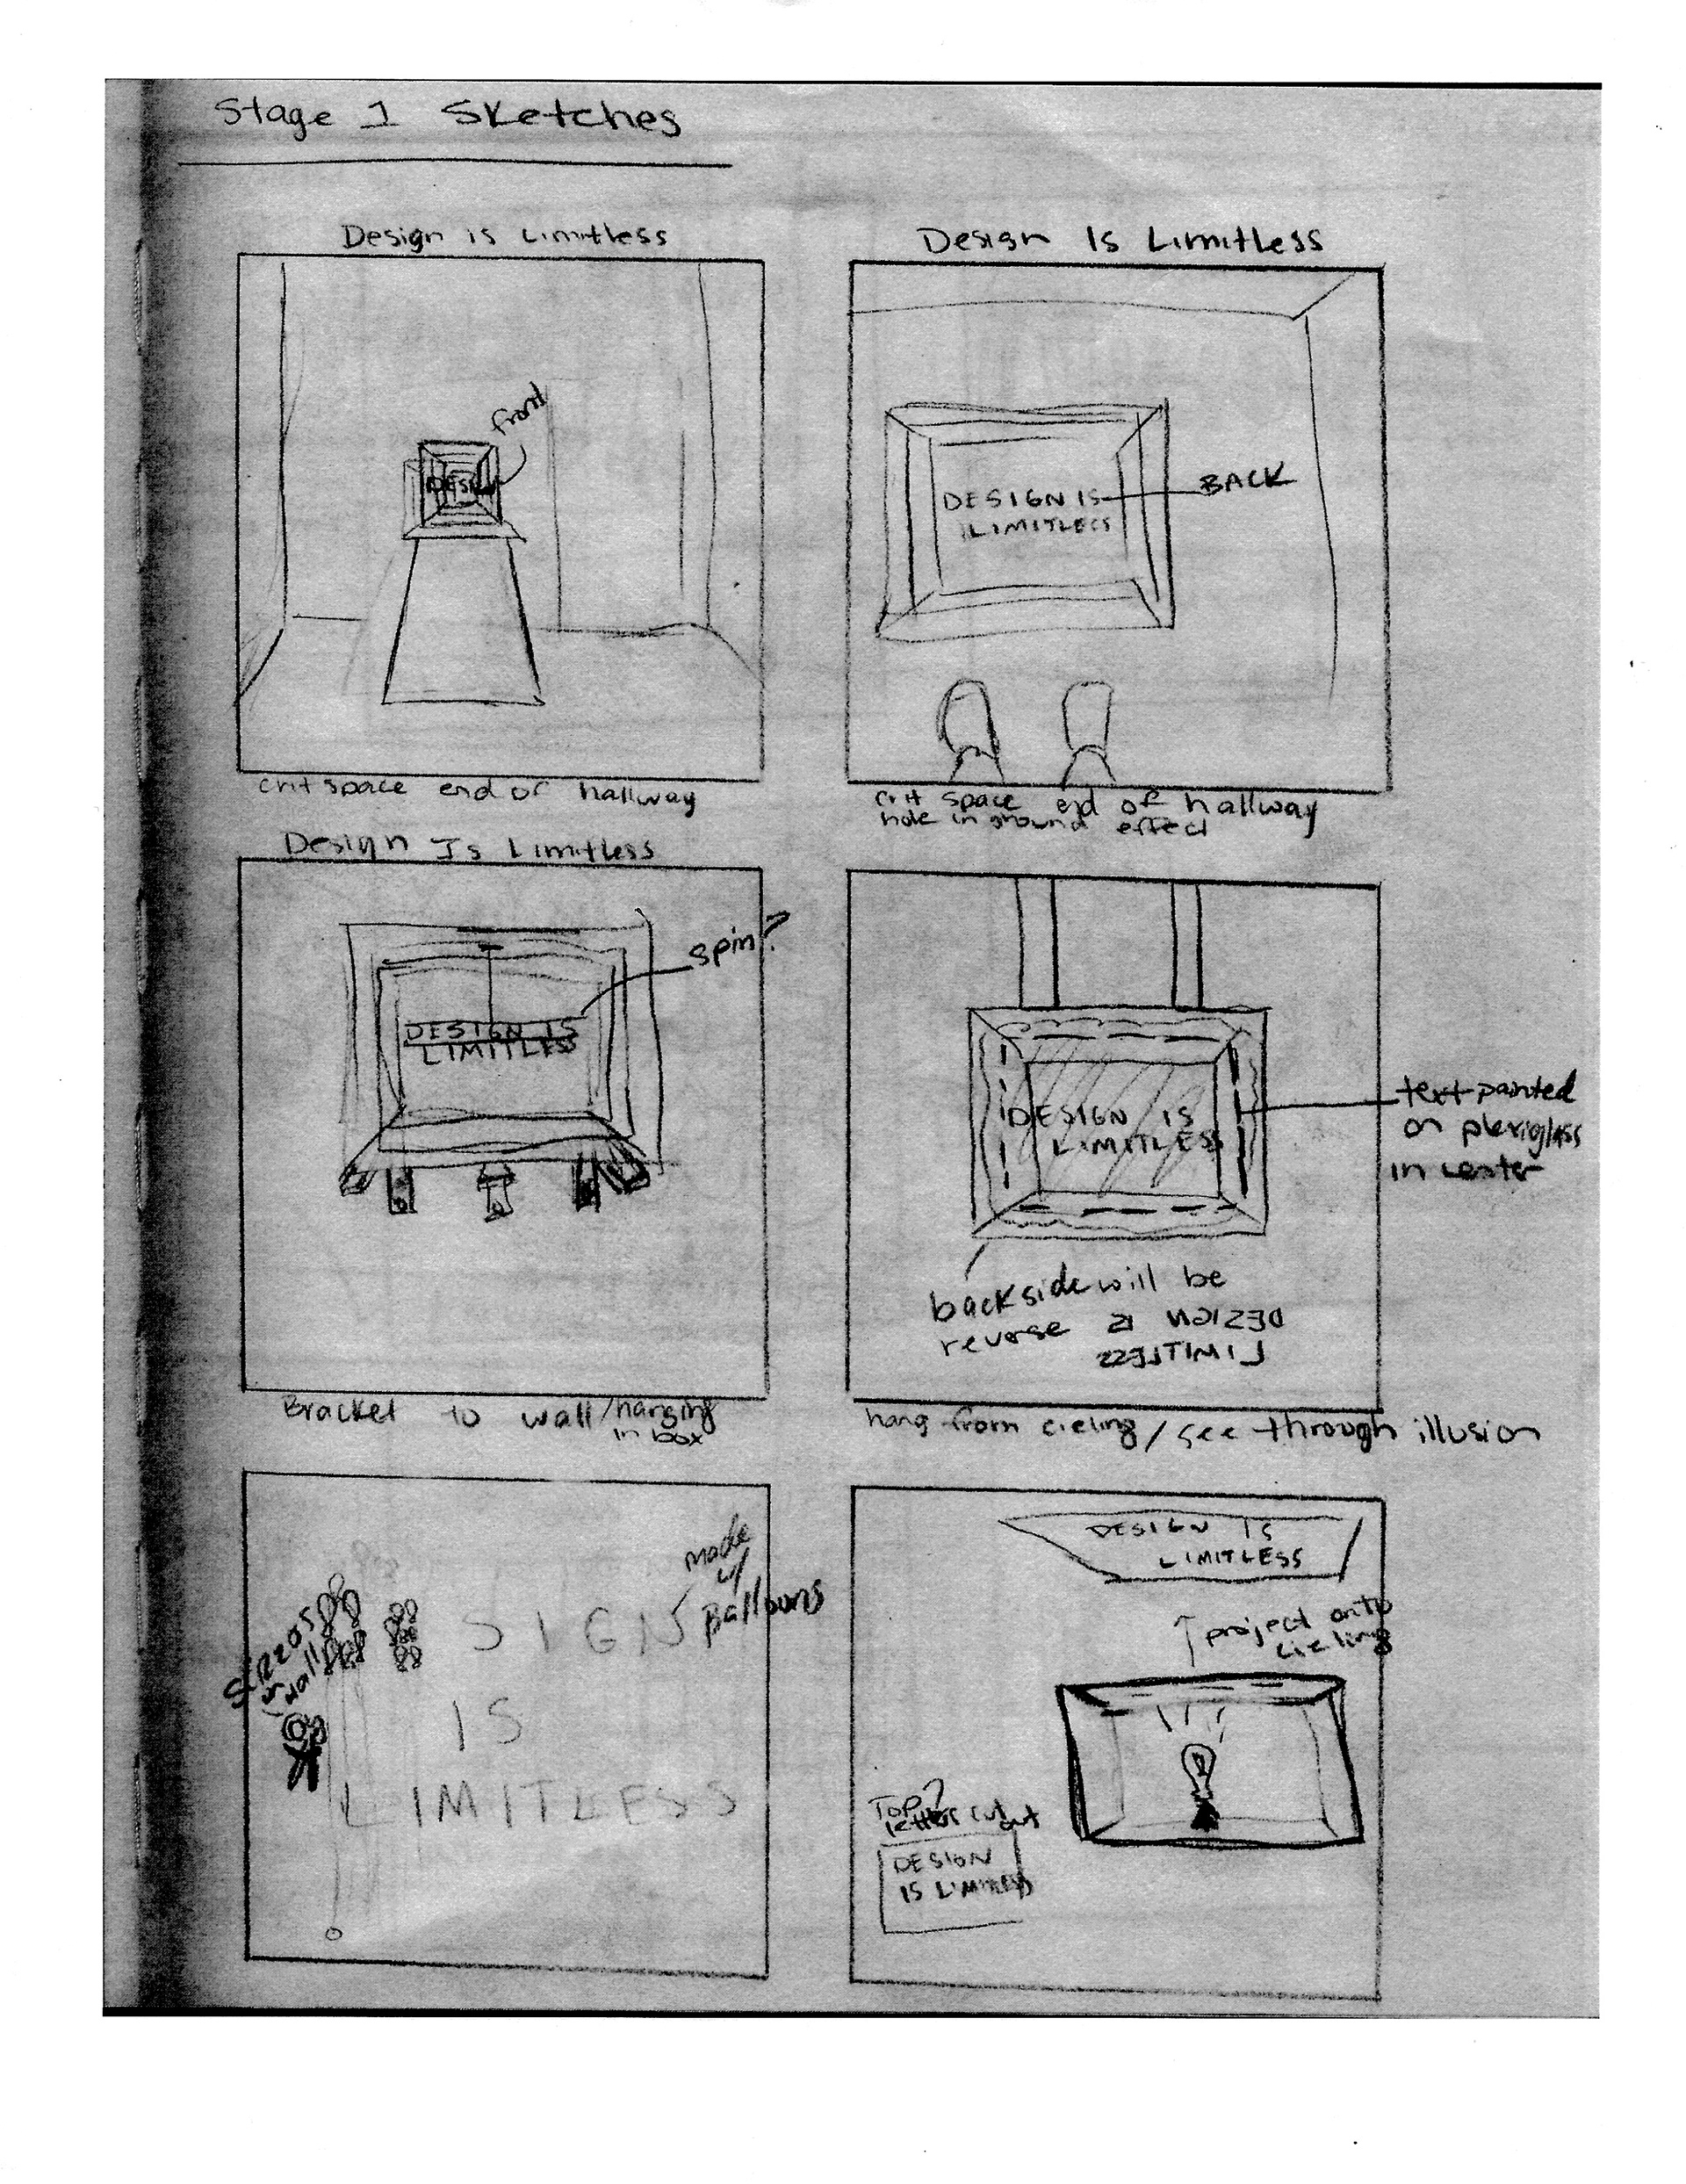 Stage 1 Sketches
Design is Limitless
front
DESIGN
crit space end of hallway
Design Is Limitless
DESIGN IS
LIMITLESS
BACK
crit space end of hallway
hole in ground effect
Design Is Limitless
spin?
DESIGN IS
LIMITLESS
Bracket to wall/hanging
in box
DESIGN IS
LIMITLESS
text painted
on plexiglass
in center
backside will be
reverse DESIGN IS
LIMITLESS
hang from cieling/see through illusion
made
w/
Balloons
on wall
SIGN
IS
LIMITLESS
DESIGN IS
LIMITLESS
project onto
cieling
Top?
letters cut out
DESIGN
IS LIMITLESS